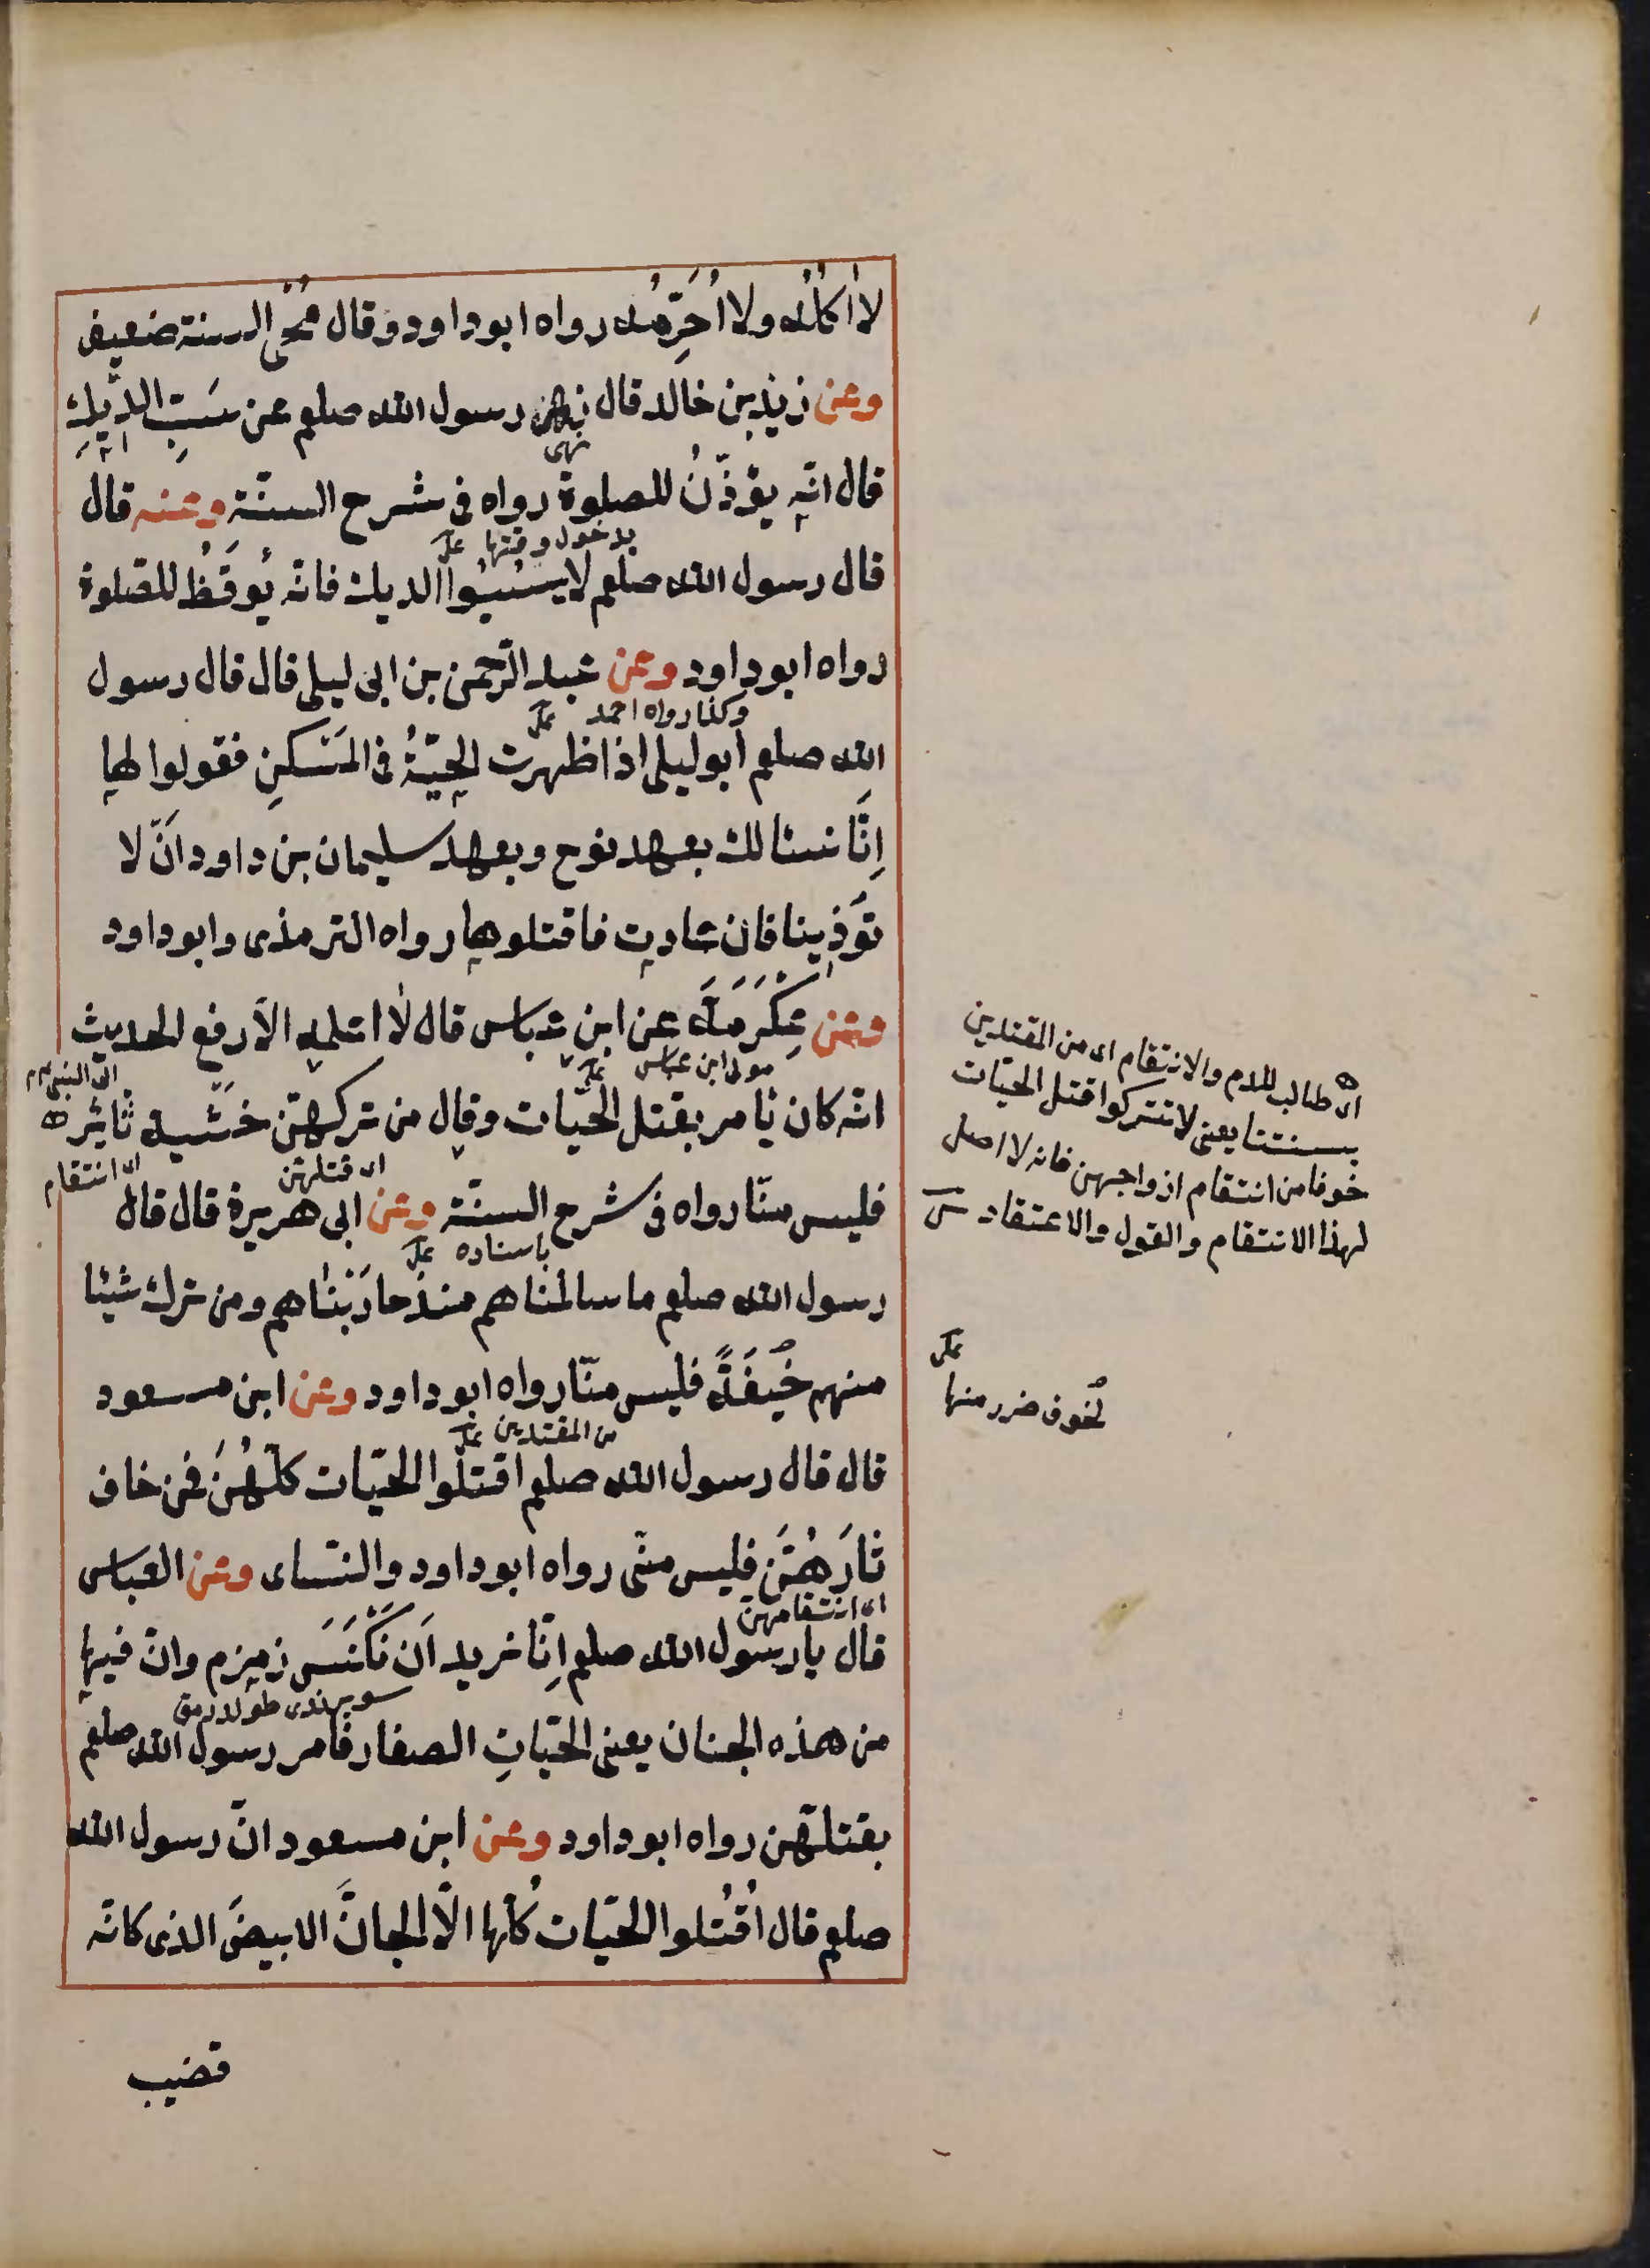 لا اٰكُلُه ولا اُحَرِّمُه رواه ابو داود وقال محُى السنة ضعيف
وعن زيد بن خالد قال نهى رسول الله صلعم عن سَبِّ الدّيكِ
نهى
قال انّه يؤذّنُ للصلوة رواه فى شرح السنّة وعنه قال
بدخول وقتها على
قال رسول الله صلعم لا يسُبّوا الديك فانّه يُوقَظُ للصّلوة
رواه ابو داود وعن عبد الرّحمن بن ابى ليلى قال قال رسول
وكذا رواه احمد على
الله صلعم ابو ليلى اذا ظهرت الحيّةُ فى المَسْكنِ فقولوا لها
اِنَّا نسئالك بعهد نوح وبعهد سليمان بن داود اَنّ لا
تؤذينا فان عادت فاقتلوها رواه الترمذى وابو داود
وعن عِكْرَمَةَ عن ابن عباس قال لا اعلمه الاّ رفع الحديث
مولى ابن عباس على
اى النبى عم
انّه كان يامر بقتل الحّيات وقال من تركهنّ خَشْيَة ثائر
اى قتلهنّ
اى انتقام
فليس منّا رواه فى شرح السنّة وعن ابى هريرة قال قال
باسناده على
رسول الله صلعم ما سالمناهم منذ حارَبْنٰاهم ومن ترك شيئا
منهم خِيفَةً فليس منّا رواه ابو داود وعن ابن مسعود
من المقتدين على
قال قال رسول الله صلعم اقتلوا الحيّات كلّهُنَّ فمن خاف
ثارَهُنَّ فليس منّى رواه ابو داود والنّساى وعن العباس
اى انتقامهنّ
قال يا رسول الله صلعم اِنّا نريد اَن نَكْنَسَ زمزم وانّ فيها
سوپرندى
من هذه الجنان يعنى الحّياتِ الصغار فامر رسول الله صلعم
بقتلهّن رواه ابو داود وعن ابن مسعود انّ رسول الله
صلعم قال اُقْتُلوا الحيّات كُلّها الاّ الجانَّ الابيضَ الذى كانّه
قضيب
اى طالب للدم والانتقام اى من المقتدين
بسنتنا يعنى لا تتركوا قتل الحيّات
خوفا من انتقام ازواجهن فانه لا اصل
لهذا الانتقام والقول والاعتقاد
على
لخوف ضرر منها